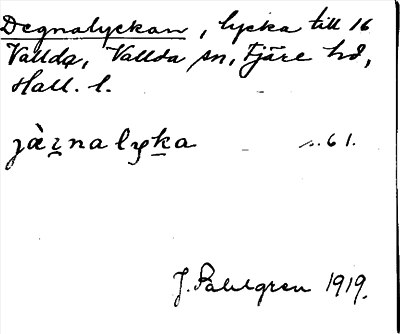 Degnalyckan, lycka till 16
Vallda, Vallda sn, Fjäre hd,
Hall. l.
jàɪ̯nalyka s. 61.
J. Pahlgren 1919.